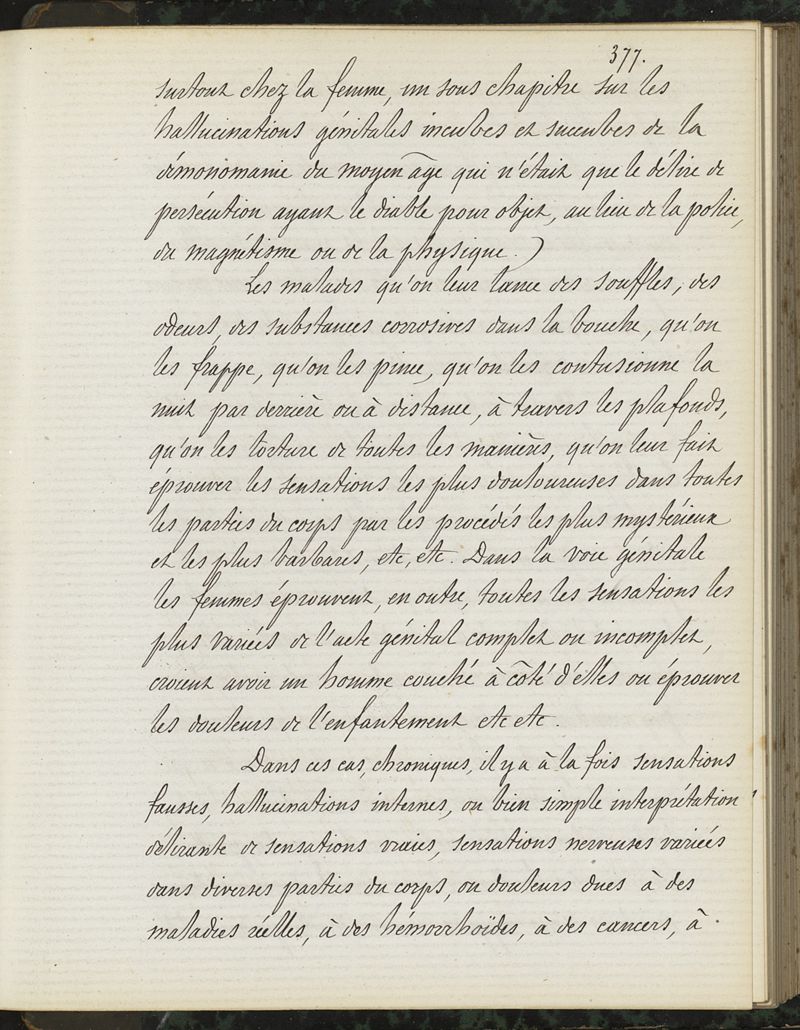 377.
surtout chez la femme, un sous chapitre sur les
hallucinations génitales incubes et succubes de la
démonomanie du moyen âge qui n'était que le délire de
persécution ayant le diable pour objet, au lieu de la police,
du magnétisme ou de la physique.)
Les malades qu'on leur lance des souffles, des
odeurs, des substances corrosives dans la bouche, qu'on
les frappe, qu'on les pince, qu'on les contusionne la
nuit par derrière ou à distance, à travers les plafonds,
qu'on les torture de toutes les manières, qu'on leur fait
éprouver les sensations les plus douloureuses dans toutes
les parties du corps par les procédés les plus mystérieux
et les plus barbares, etc, etc. Dans la voie génitale
les femmes éprouvent, en outre, toutes les sensations les
plus variées de l'acte génital complet ou incomplet,
croient avoir un homme couché à côté d'elles ou éprouver
les douleurs de l'enfantement etc etc.
Dans ces cas, chroniques, il y a à la fois sensations
fausses, hallucinations internes, ou bien simple interprétation
délirante de sensations vraies, sensations nerveuses variées
dans diverses parties du corps, ou douleurs dues à des
maladies réelles, à des hémorrhoïdes, à des cancers, à